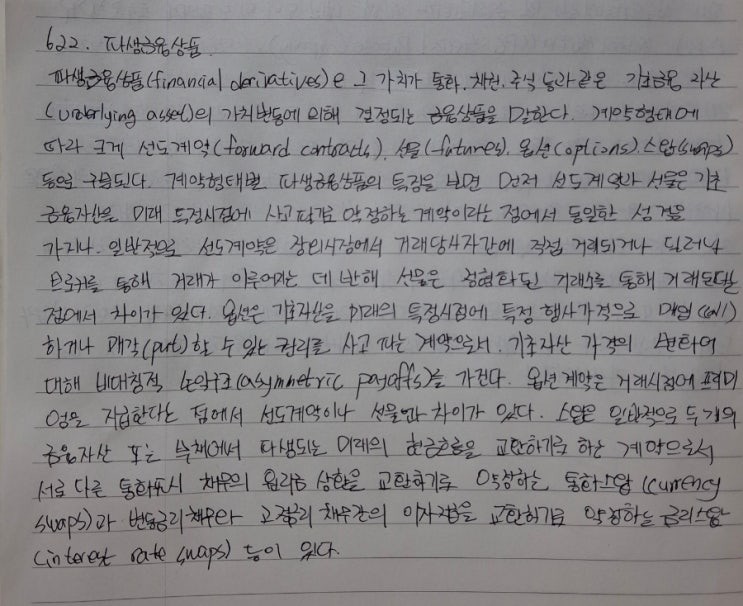 622. 파생금융상품
파생금융상품(financial derivatives)은 그 가치가 통화, 채권, 주식 등과 같은 기초금융 자산
(underlying asset)의 가치변동에 의해 결정되는 금융상품을 말한다. 계약형태에
따라 크게 선도계약(forward contracts), 선물(futures), 옵션(options), 스왑(swaps)
등으로 구분된다. 계약형태별 파생금융상품의 특징을 보면 먼저 선도계약과 선물은 기초
금융자산을 미래 특정시점에 사고 팔기로 약정하는 계약이라는 점에서 동일한 성격을
가지나. 일반적으로 선도계약은 장외시장에서 거래당사자간에 직접 거래되거나 딜러나
브로커를 통해 거래가 이루어지는 데 반해 선물은 정형화된 거래소를 통해 거래된다는
점에서 차이가 있다. 옵션은 기초자산을 미래의 특정시점에 특정 행사가격으로 매입(call)
하거나 매각(put)할 수 있는 권리를 사고 파는 계약으로서. 기초자산 가격의 변화에
대해 비대칭적 손익구조(asymmetric payoffs)를 가진다. 옵션계약은 거래시점에 프리미
엄을 지급한다는 점에서 선도계약이나 선물과 차이가 있다. 스왑은 일반적으로 두 개의
금융자산 또는 부채에서 파생되는 미래의 현금흐름을 교환하기로 하는 계약으로서
서로 다른 통화표시 채무의 원리금 상환을 교환하기로 약정하는 통화스왑(currency
swaps)과 변동금리채무와 고정금리 채무간의 이자지급을 교환하기로 약정하는 금리스왑
(interest rate swaps) 등이 있다.